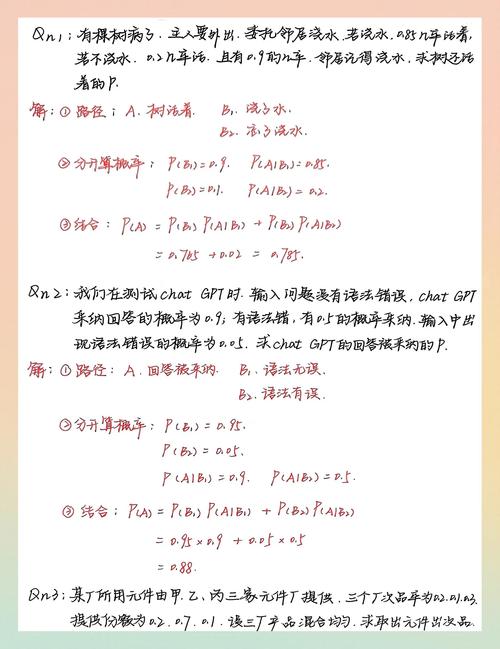 Qn1：有棵树病了．主人要外出．委托邻居浇水．若浇水．0.85几率活着，
若不浇水．0.2几率活．且有0.9的几率．邻居记得浇水．求树还活
着的P．
解：① 路径：A．树活着． B₁．浇了水．
B₂．忘了浇水．
② 分开算概率：P(B₁)=0.9． P(A|B₁)=0.85．
P(B₂)=0.1． P(A|B₂)=0.2．
③ 结合：P(A) = P(B₁)P(A|B₁) + P(B₂)P(A|B₂)
= 0.765 + 0.02 = 0.785．
Qn2：我们在测试chat GPT时．输入问题没有语法错误，chat GPT
采纳回答的概率为0.9；有语法错，有0.5的概率采纳．输入中出
现语法错误的概率为0.05．求chat GPT的回答被采纳的P．
解：① 路径：A．回答被采纳． B₁．语法无误．
B₂．语法有误．
② 分开算概率：P(B₁)=0.95．
P(B₂)=0.05．
P(A|B₁)=0.9． P(A|B₂)=0.5．
③ 结合：P(A) = P(B₁)P(A|B₁) + P(B₂)P(A|B₂)
= 0.95×0.9 + 0.05×0.5
= 0.88．
Qn3：某厂所用元件由甲．乙．丙三家元件厂提供．三个厂次品率为0.2.0.1.0.3．
提供份数为0.2．0.7．0.1．该三厂产品混合均匀．求取出元件出次品